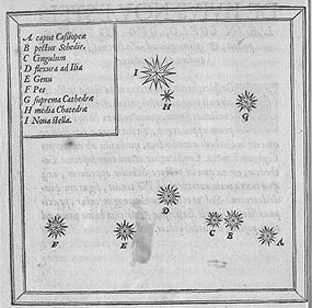 A caput Cassiopeæ
B pectus Schedir.
C Cingulum
D flexura ad Ilia
E Genu
F Pes
G suprema Cathedræ
H media Chatedræ
I Nova stella.
I
H
G
D
C
E
B
F
E
A